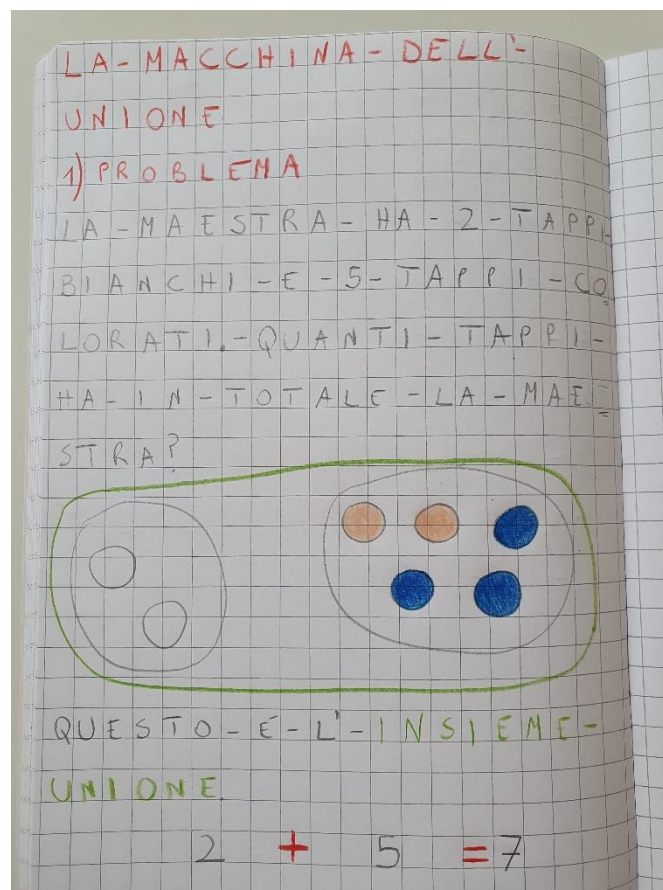 LA-MACCHINA-DELL'-
UNIONE
1) PROBLEMA
LA-MAESTRA-HA-2-TAPPI-
BIANCHI-E-5-TAPPI-CO
LORATI.-QUANTI-TAPPI-
HA-IN-TOTALE-LA-MAE=
STRA?
QUESTO-E-L'-INSIEME-
UNIONE.
2 + 5 = 7